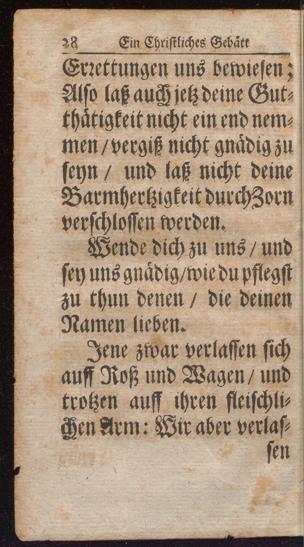 28 Ein Christliches Gebätt
Errettungen uns bewiesen;
Also laß auch jetz deine Gut-
thätigkeit nicht ein end nem-
men / vergiß nicht gnädig zu
seyn / und laß nicht deine
Barmhertzigkeit durch Zorn
verschlossen werden.
Wende dich zu uns / und
sey uns gnädig / wie du pflegst
zu thun denen / die deinen
Namen lieben.
Jene zwar verlassen sich
auff Roß und Wagen / und
trotzen auff ihren fleischli-
chen Arm: Wir aber verlas-
sen